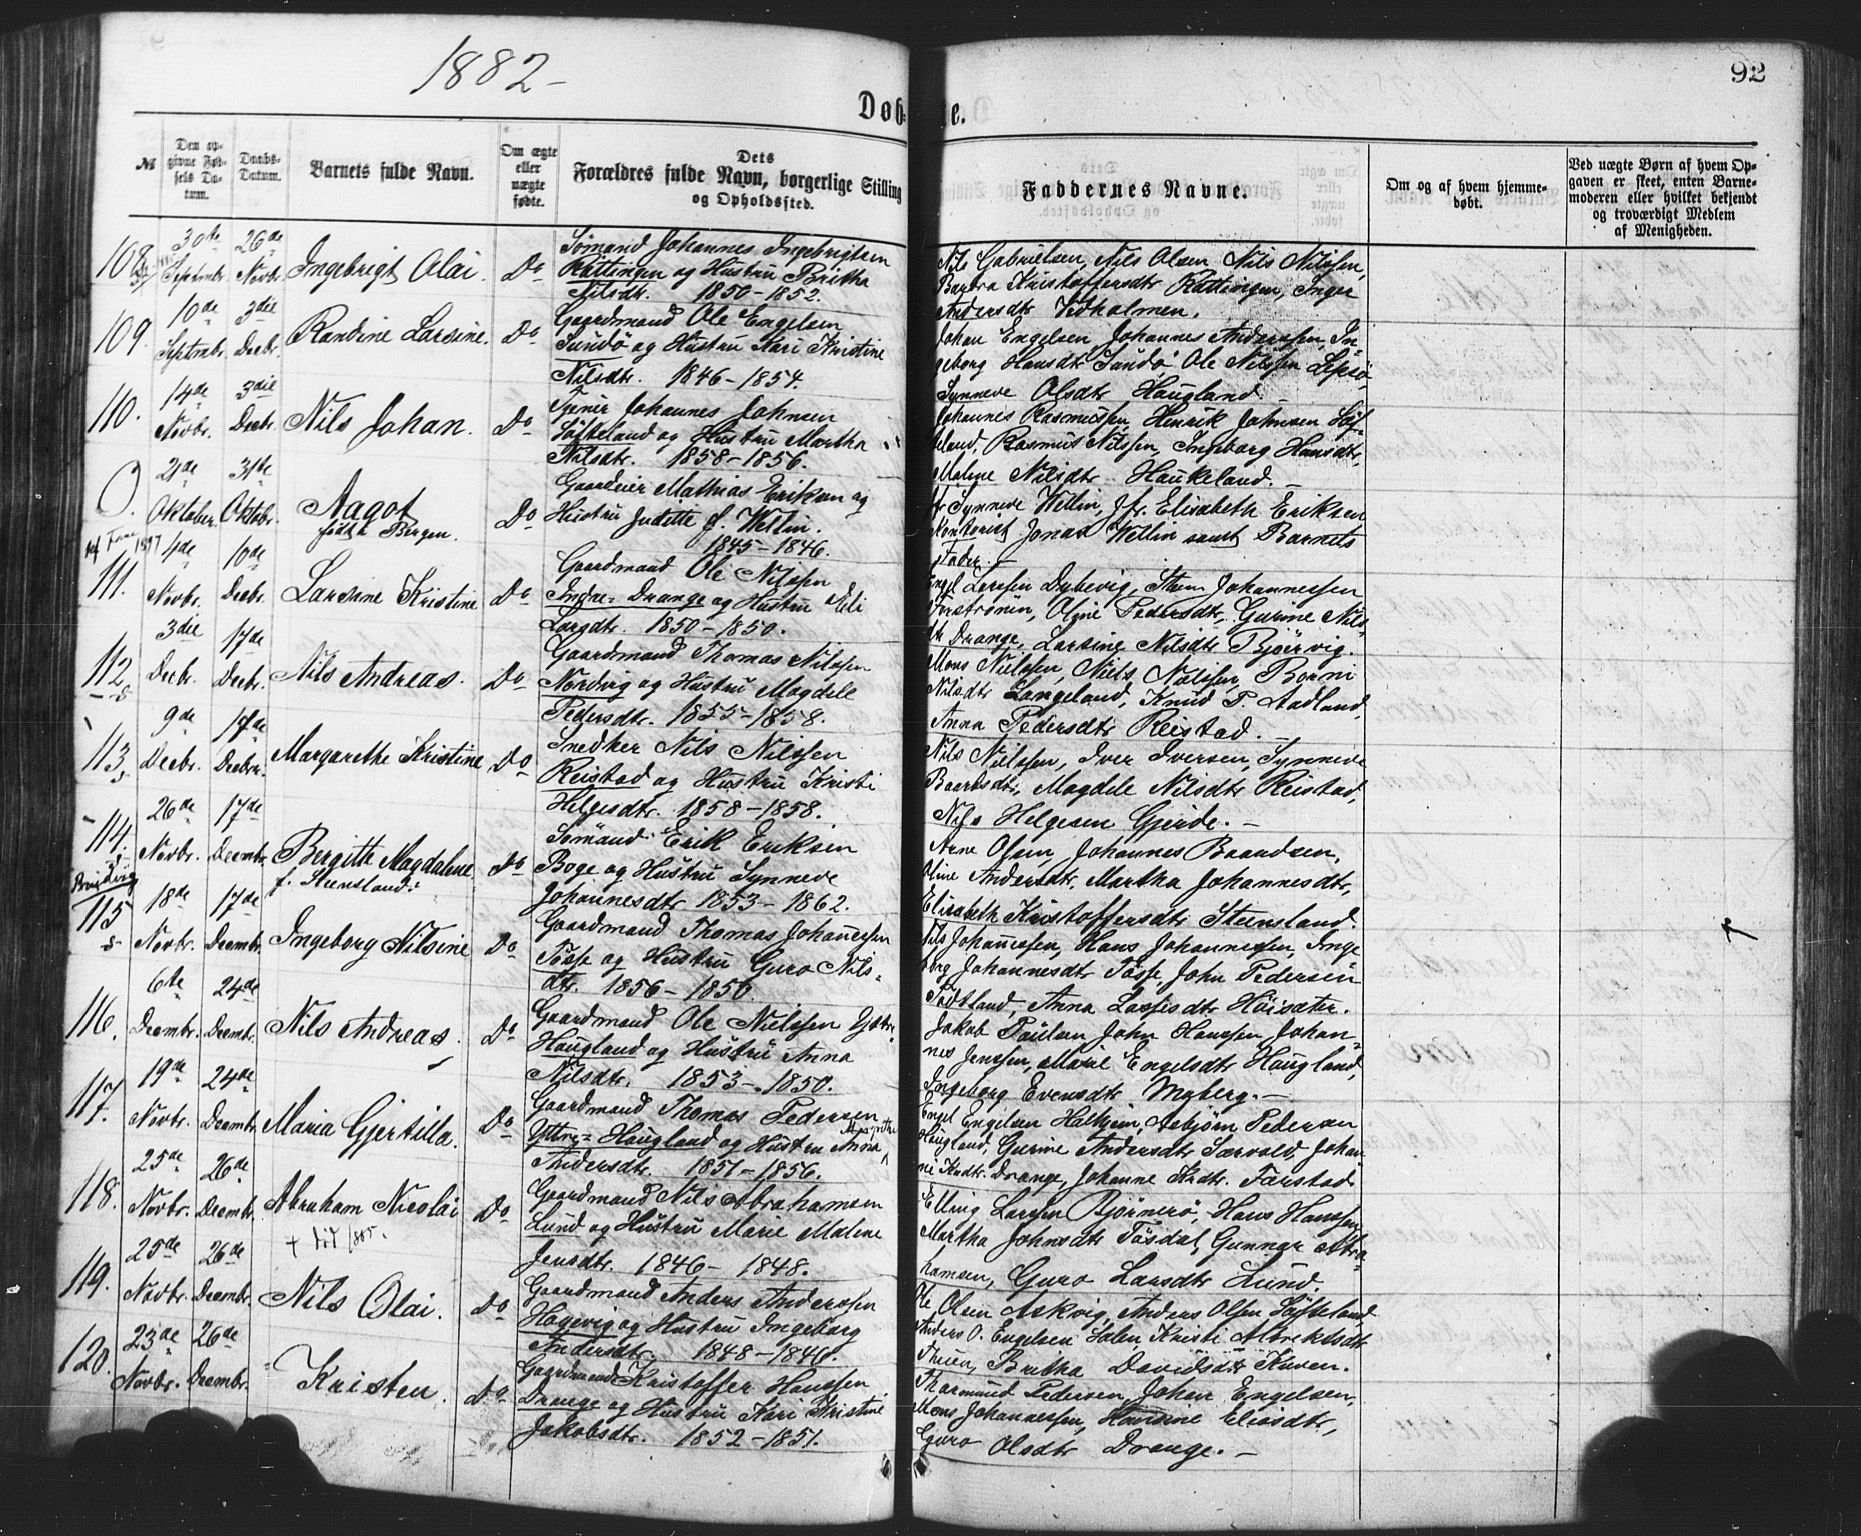 1882 -
92
Døb-
te.
№
Den op-
givne Føb-
sels Da-
tum.
Daabs-
Datum.
Barnets fulde Navn.
Om ægte
eller
uægte
fødte.
Dets
Forældres fulde Navn, borgerlige Stilling
og Opholdssted.
Faddernes Navne.
Om og af hvem hjemme-
døbt.
Ved uægte Børn af hvem Op-
gaven er skeet, enten Barne-
moderen eller hvilket bekjendt
og troværdigt Medlem
af Menigheden.
108.
30te
Septembr.
26de
Novbr.
Ingebrigt Olai.
Do
Sømand Johannes Ingebrigtsen
Røttingen og Hustru Britha
Nilsdtr. 1850-1852.
Nils Gabrielsen, Nils Olsen, Nils Nilssen,
Kristoffersdtr Røttingen, Inger
Andersdtr Vedholmen.
109.
10de
Septmbr.
3die
Decbr.
Randine Larsine.
Do
Gaardmand Ole Engelsen
Sundø og Hustru Kari Kristine
Nilsdtr. 1846-1854.
Johan Engelsen, Johannes Anderssen, In=
geborg Hansdtr Sundø, Ole Nilssen Lepsø
Synneve Olsdtr Haugland
110.
14de
Novbr.
3die
Decbr.
Nils Johan.
Do
Tjener Johannes Johnsen
Søfteland og Hustru Martha
Nilsdtr. 1858-1856.
Johannes Rasmussen, Henrik Johnsen Søf-
teland, Rasmus Nilssen, Ingeborg Hansdtr,
Malene Nilsdtr Haukeland.
0.
21de
Oktober
31te
Oktobr.
Aagot
født i Bergen.
Do
Gaardeier Mathias Eriksen og
Hustru Judithe f. Wellin.
1845-1846.
Fr Synneve Wellin, Jfr. Elisabeth Eriksen
Kontorist Jonas Wellin samt Barnets
Fader.-
111.
4de
Novbr.
10de
Decbr.
Larsine Kristine
Do
Gaardmand Ole Nilssen
Indre= Drange og Hustru Eli
Larsdtr. 1850-1850.
Engel Larssen Dybevig, Johannessen
Oline Pedersdtr, Gurine Nils-
dtr Drange, Larsine Nilsdtr Bjørvig.
112.
3die
Decbr.
17de
Decbr.
Nils Andreas.
Do
Gaardmand Thomas Nilssen
Nordvig og Hustru Magdele
Pedersdtr. 1855-1858.
Mons Nielssen, Niels Nielssen,
Nilsdtr Langeland, Knud P. Aadland,
Anna Pedersdtr Reistad. -
113.
9de
Decbr.
17de
Decbr.
Margarethe Kristine
Do
Snedker Nils Nilssen
Reistad og Hustru Kristi
Helgesdtr. 1858-1858.
Nils Nielssen, Iver Iversen, Synneve
Baardsdtr, Magdele Nilsdtr Reistad,
Nils Helgesen Gjerde. -
114.
26de
Novbr.
17de
Decmbr.
Bergitte Magdalene
f. Steensland.
Do
Sømand Erik Eriksen
Boge og Hustru Synneve
Johannesdtr 1853-1862.
Arne Olsen, Johannes Baardsen,
Oline Andersdtr, Martha Johannesdtr,
Elisabeth Kristoffersdtr Steensland.
115
18de
Novbr.
17de
Decmbr.
Ingeborg Nilsine
Do
Gaardmand Thomas Johannessen
Tøsse og Hustru Guro Nils-
dtr. 1856-1850.
Nils Johannessen, Hans Johannessen, Inge
borg Johannesdtr Tøsse, John Pedersen
Anna Lassesdtr Høisæter.
116.
6te
Decmbr.
24de
Decmbr.
Nils Andreas.
Do
Gaardmand Ole Nielssen Yttre
Haugland og Hustru Anna
Nilsdtr. 1853-1850.
Jakob Paulsen, John Hanssen, Johan-
nes Jenssen, Engelsdtr Haugland,
Ingeborg Evensdtr Myberg.-
117.
19de
Novbr.
24de
Decmbr.
Maria Gjertilla.
Do
Gaardmand Thomas Pedersen
Yttre= Haugland og Hustru Anna
Andersdtr. 1851-1856.
Engel Engelsen Halhjem, Asbjørn Pedersen
Haugland, Gurine Andersdtr Særvold, Johan
ne Kndtr. Drange, Johanne Kndtr. Farstad
118.
25de
Novbr.
26de
Decmbr.
Abraham Nicolai
† død 1885.
Do
Gaardmand Nils Abrahamsen
Lund og Hustru Marie Malene
Jensdtr. 1846- 1848.
Elling Larssen Bjørnerø, Hans Hanssen
Martha Johnsdtr Tøsdal, Gunnar Abra
hamsen, Guro Larsdtr Lund.
119.
25de
Novbr.
26de
Decmbr.
Nils Olai.
Do
Gaardmand Anders Anderssen
Hagevig og Hustru Ingeborg
Andersdtr. 1848-1846.
Ole Olsen Askvig, Anders Olsen Søfteland
Anders O. Engelsen
Britha Davidsdtr Kuven.
120.
23de
Novbr.
26de
Decmbr.
Kristen.
Do
Gaardmand Kristoffer Hanssen
Drange og Hustru Kari Kristine
Jakobsdtr. 1852-1851.
Thormund Pedersen, Johan Engelsen,
Mons Johannessen, Hansine Eliasdtr,
Guro Olsdtr Drange. -